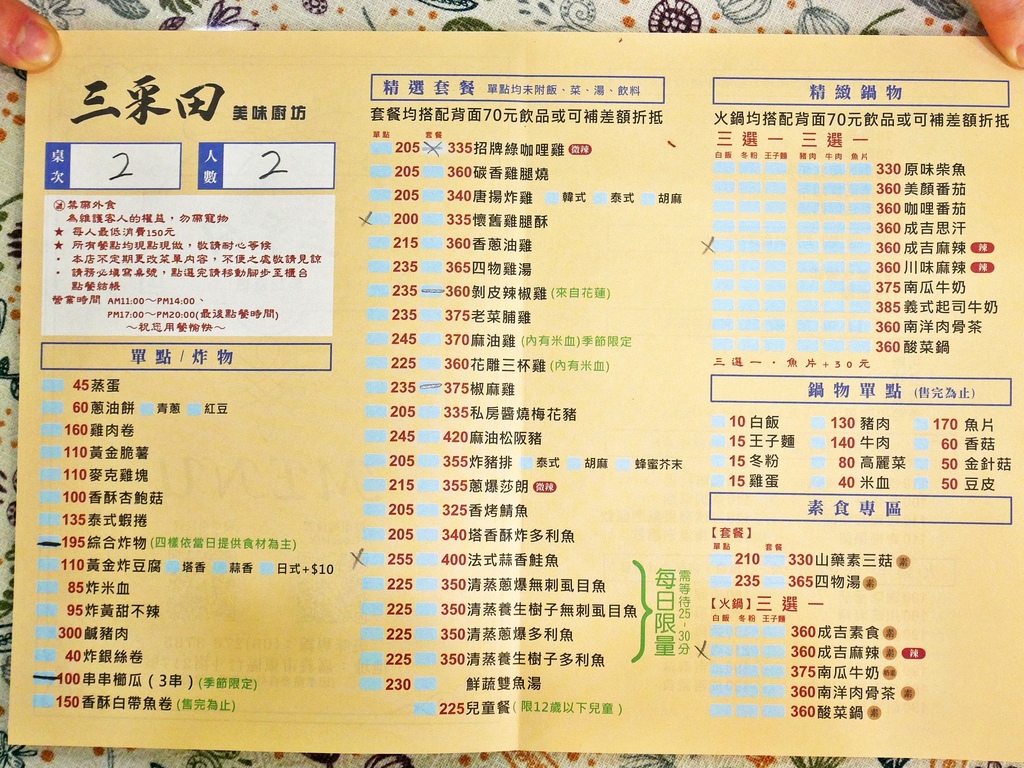 三采田 美味廚坊
桌次 2
人數 2
禁帶外食
為維護客人的權益，勿帶寵物
★ 每人最低消費150元
★ 所有餐點均現點現做，敬請耐心等候
· 本店不定期更改菜單內容，不便之處敬請見諒
· 請務必填寫桌號，點選完請移動腳步至櫃台
點餐結帳
營業時間 AM11:00～PM14:00、
PM17:00～PM20:00(最後點餐時間)
～祝您用餐愉快～
單點/炸物
45蒸蛋
60蔥油餅 青蔥 紅豆
160雞肉卷
110黃金脆薯
110麥克雞塊
100香酥杏鮑菇
135泰式蝦捲
195綜合炸物(四樣依當日提供食材為主)
110黃金炸豆腐 塔香 蒜香 日式+$10
85炸米血
95炸黃甜不辣
300鹹豬肉
40炸銀絲卷
100串串櫛瓜（3串）(季節限定)
150香酥白帶魚卷(售完為止)
精選套餐 單點均未附飯、菜、湯、飲料
套餐均搭配背面70元飲品或可補差額折抵
單點 套餐
205 335招牌綠咖哩雞 微辣
205 360碳香雞腿燒
205 340唐揚炸雞 韓式 泰式 胡麻
200 335懷舊雞腿酥
215 360香蔥油雞
235 365四物雞湯
235 360剝皮辣椒雞(來自花蓮)
235 375老菜脯雞
245 370麻油雞(內有米血)季節限定
225 360花雕三杯雞(內有米血)
235 375椒麻雞
205 335私房醬燒梅花豬
245 420麻油松阪豬
205 355炸豬排 泰式 胡麻 蜂蜜芥末
215 355蔥爆莎朗 微辣
205 325香烤鯖魚
205 340塔香酥炸多利魚
255 400法式蒜香鮭魚
225 350清蒸蔥爆無刺虱目魚
225 350清蒸養生樹子無刺虱目魚
225 350清蒸蔥爆多利魚
225 350清蒸養生樹子多利魚
230 鮮蔬雙魚湯
225兒童餐(限12歲以下兒童)
每日限量
需等待25-30分
精緻鍋物
火鍋均搭配背面70元飲品或可補差額折抵
三選一 三選一
白飯 冬粉 王子麵 豬肉 牛肉 魚片
330原味柴魚
360美顏番茄
360咖哩番茄
360成吉思汗
360成吉麻辣 辣
360川味麻辣 辣
375南瓜牛奶
385義式起司牛奶
360南洋肉骨茶
360酸菜鍋
三選一·魚片+30元
鍋物單點 (售完為止)
10白飯 130豬肉 170魚片
15王子麵 140牛肉 60香菇
15冬粉 80高麗菜 50金針菇
15雞蛋 40米血 50豆皮
素食專區
【套餐】
單點 套餐
210 330山藥素三菇 素
235 365四物湯 素
【火鍋】三選一
白飯 冬粉 王子麵
360成吉素食 素
360成吉麻辣 素 辣
375南瓜牛奶
360南洋肉骨茶 素
360酸菜鍋 素